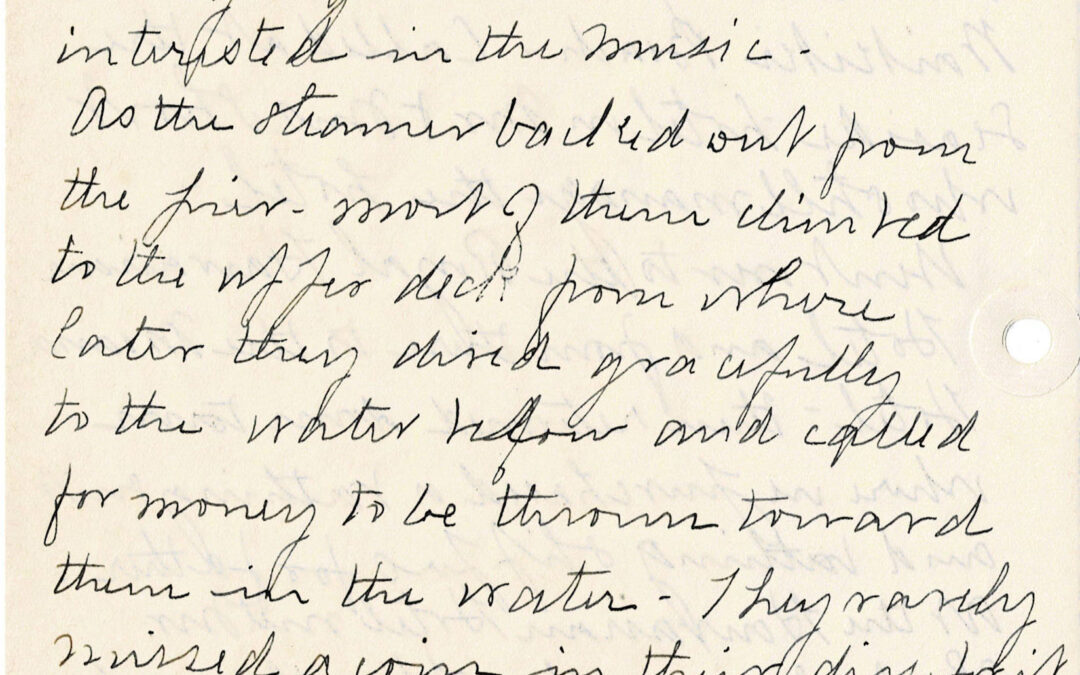 interested in the music -
As the steamer backed out from
the pier - most of them climbed
to the upper deck from where
later they dived gracefully
to the water below and called
for money to be thrown toward
them in the water - They rarely
missed a coin in their dive to it